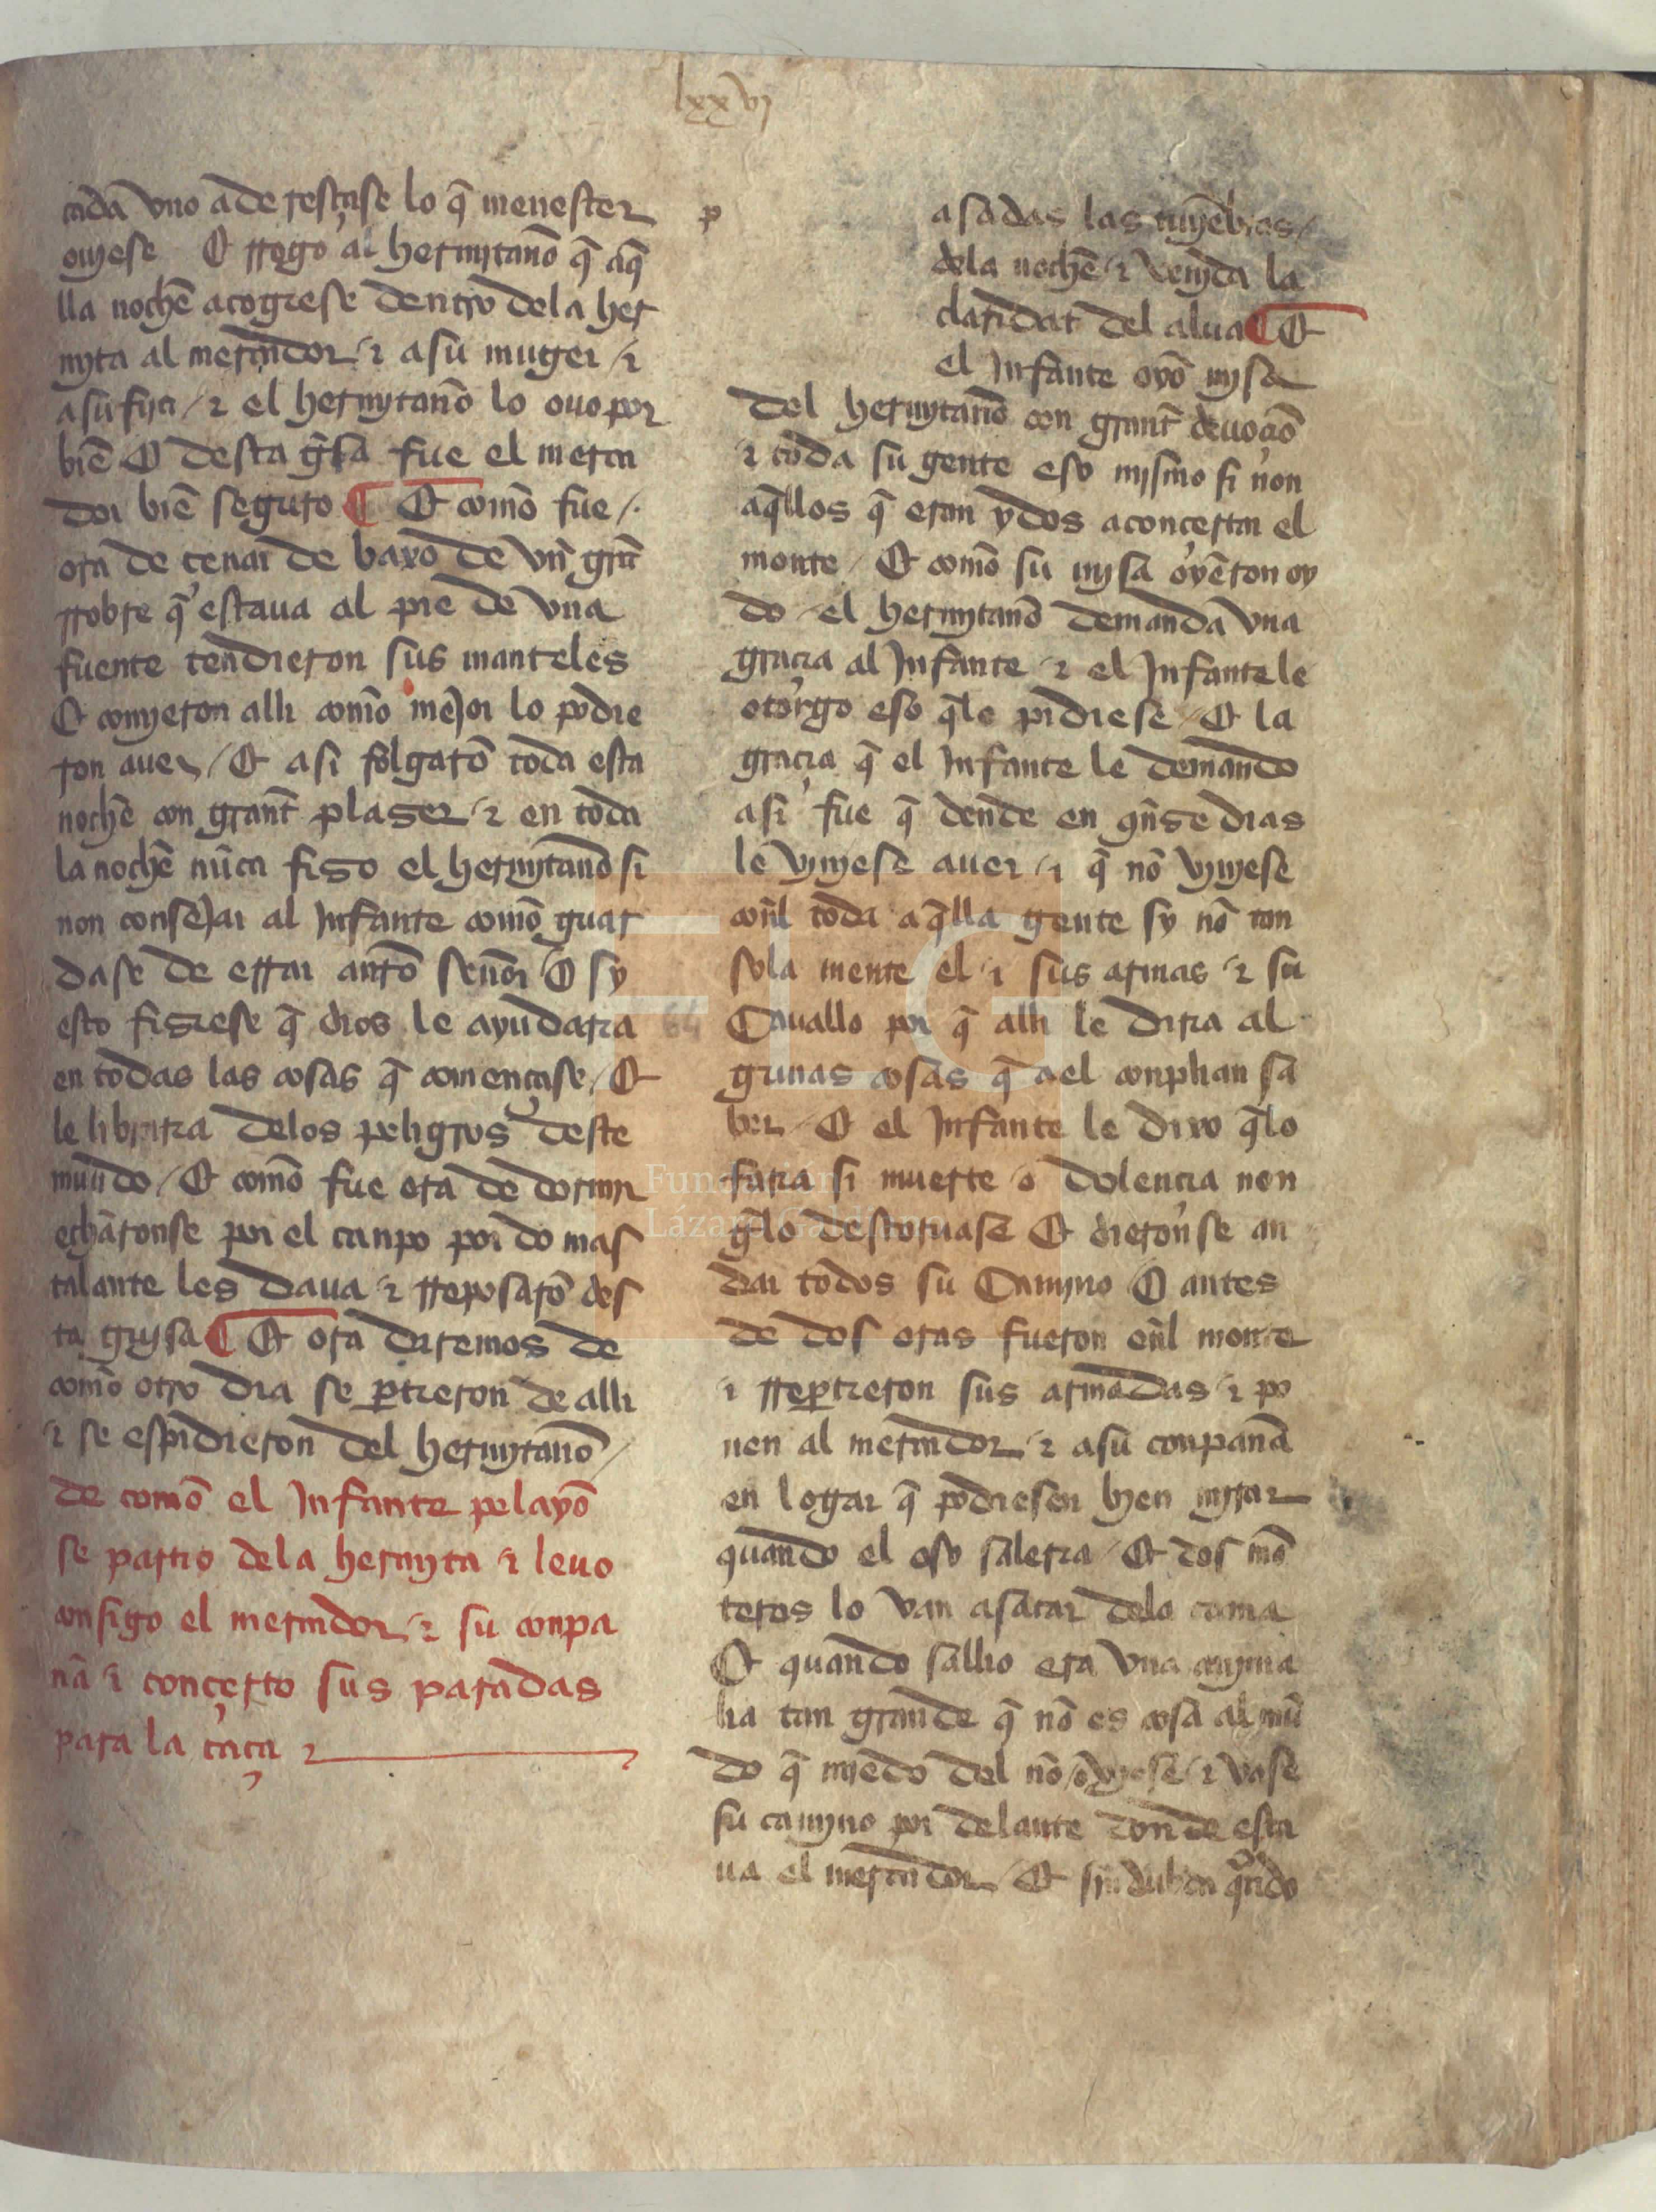 lxxvj
cada vno aderesçase lo q̃ menester
ouiese Et rrogo al hermitano q̃ aq̃
lla noche acogiese dentro dela her
myta al mercador / ⁊ asu muger / ⁊
asu fija / ⁊ el hermytano lo ouo por
biẽ Et desta gũsa fue el merca
dor biẽ seguro ¶ Et como fue /.
ora de cenar de baxo de vn grãt
rrobre q̃ estaua al pie de vna
fuente tendieron sus manteles
Et comieron alli como mejor lo podie
ron auer / Et asi folgarõ toda esta
noche con grant plaser / ⁊ en toda
la noche nũca fiso el hermytano si
non consejar al Infante como guar
dase de errar a nr̃o señor Et sy
esto fisiese q̃ dios le ayudaria
en todas las cosas q̃ començase / Et
le libraria delos peligros deste
mundo / Et como fue ora de dormir
echaronse por el canpo por do mas
talante les daua / ⁊ rreposarõ des
ta guysa ¶ Et ora diremos de
como otro dia se ꝑtieron de alli
⁊ se espidieron del hermytano /
de como el Infante pelayo
se partio dela hermyta ⁊ leuo
consigo el mercador / ⁊ su conpa
ña ⁊ conçerto sus paradas
para la caça ⁊
p asadas las tinyẽbras /
dela noche / ⁊ venida la
claridat del alua ¶ Et
el Infante oyo mysa
del hermytano con grant deuoçiõ
⁊ toda su gente eso mismo si non
aq̃llos q̃ eran ydos a conçertar el
monte / Et como su mysa ovẽron oy
do / el hermytano demanda vna
gracia al Infante / ⁊ el Infante le
otorgo eso q̃le pidiese / Et la
gracia q̃ el Infante le demando
asi fue q̃ dende en qñse dias
le vyniese a uer / ⁊ q̃ nõ vyniese
coñl toda aq̃lla gente sy nõ tan
sola mente el / ⁊ sus armas / ⁊ su
Cauallo por q̃ alli le diria al
gunas cosas q̃ a el conplian sa
ber / Et el Infante le dixo q̃lo
faria si muerte / o dolencia non
gelo destoruase Et dieronse an
dar todos su Camyno Et antes
de dos oras fueron eñl monte
⁊ rreꝑtieron sus armadas / ⁊ po
nen al mercador / ⁊ asu conpaña
en logar q̃ podiesen byen mirar
quando el oso saleria / Et dos mõ
teros lo van a sacar dela cama
Et quando sallio era vna anyma
lia tan grande q̃ nõ es cosa al mũ
do q̃ miedo del nõ ouiese / ⁊ vase
su camyno por delante donde esta
ua el mercador / Et sin dubda quãdo
64
FLG
Fundación
Lázaro Galdiano